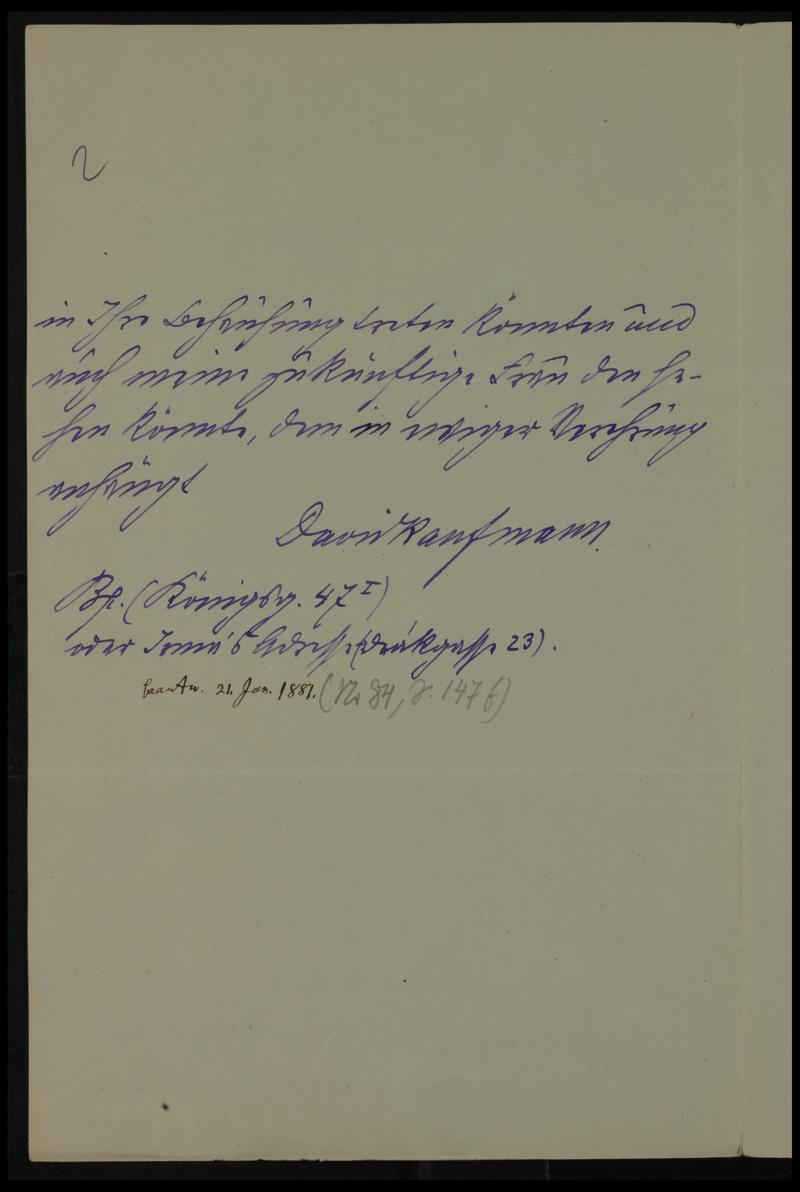 2
in Ihre Beziehung treten könnten und
auch meine zukünftige Frau den se-
hen könnte, dem in ewiger Verehrung
anhängt
David Kaufmann.
Bp. (Königsg. 47 I)
oder Irma's Adresse (Deákgasse 23).
beantw. 21. Jan. 1881. (No 84, S. 147 f)